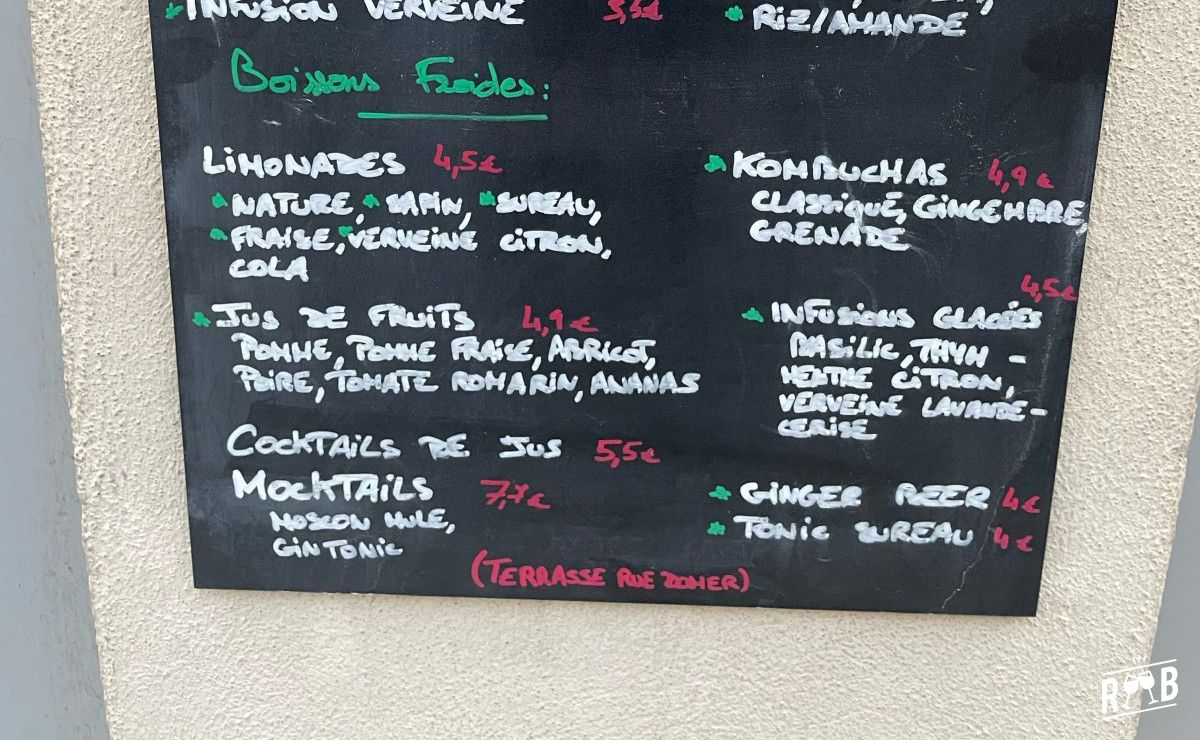 INFUSION VERVEINE 3,5€
RIZ/AMANDE
Boissons Froides:
LIMONADES 4,5€
NATURE, SAPIN, SUREAU,
FRAISE, VERVEINE CITRON,
COLA
JUS DE FRUITS 4,9€
POMME, POMME FRAISE, ABRICOT,
POIRE, TOMATE ROMARIN, ANANAS
COCKTAILS DE JUS 5,5€
MOCKTAILS 7,7€
MOSCOW MULE,
GIN TONIC
KOMBUCHAS 4,9€
CLASSIQUE, GINGEMBRE,
GRENADE
4,5€
INFUSIONS GLACÉES
BASILIC, THYM -
MENTHE CITRON,
VERVEINE LAVANDE -
CERISE
GINGER BEER 4€
TONIC SUREAU 4€
(TERRASSE RUE ZOMER)
R B